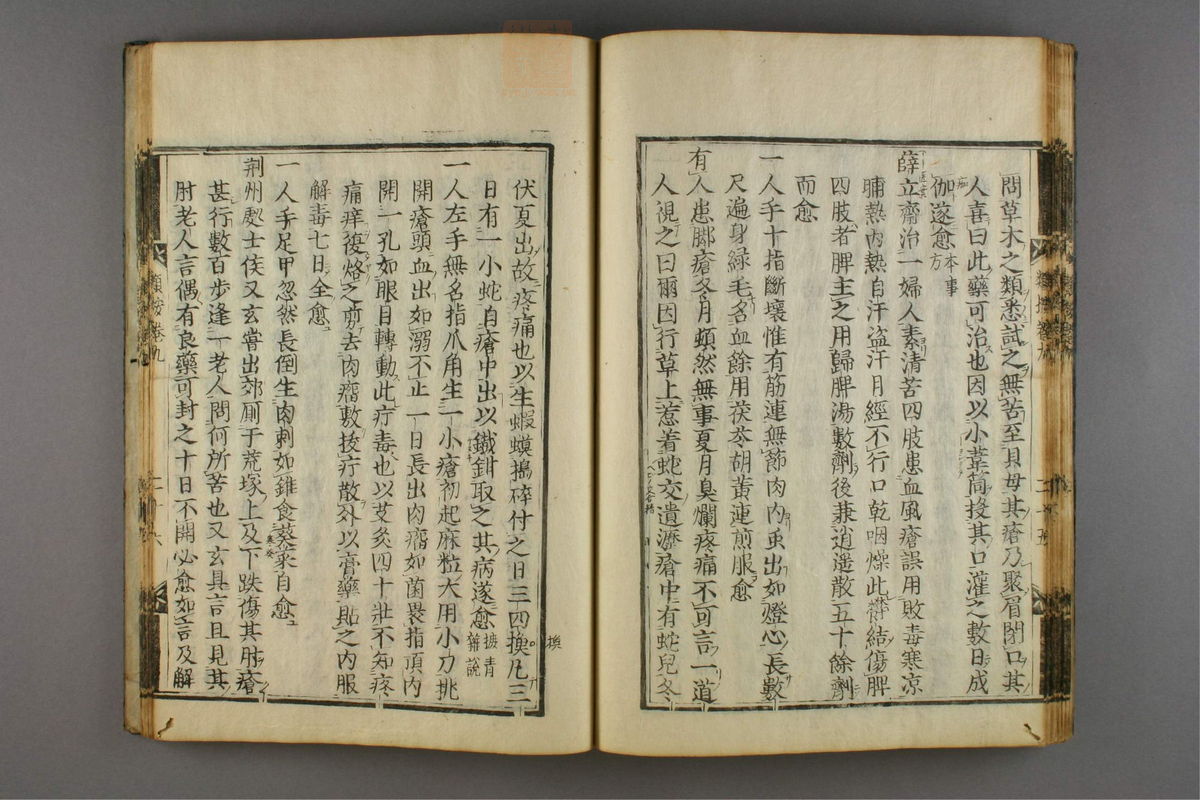 問草木之類悉試之無苦至貝母其瘡乃聚眉閉口其
人喜曰此藥可治也因以小葦筒投其口灌之數日成
痂遂愈本事方
薛立齋治一婦人素清苦四肢患血風瘡誤用敗毒寒凉
晡熱內熱自汗盜汗月經不行口乾咽燥此鬱結傷脾
四肢者脾主之用歸脾湯數劑後兼逍遥散五十餘劑
而愈
一人手十指斷壞惟有筋連無節肉內虫出如燈心長數
尺遍身緑毛名血餘用茯苓胡黃連煎服愈
有人患脚瘡冬月頓然無事夏月臭爛疼痛不可言一道
人視之曰爾因行草上惹着蛇交遺瀝瘡中有蛇兒冬
伏夏出故疼痛也以生蝦蟆搗碎付之日三四換凢三
日有一小蛇自瘡中出以鐵鉗取之其病遂愈摭青雜說
一人左手無名指爪角生一小瘡初起麻粒大用小刀挑
開瘡頭血出如溺不止一日長出肉瘤如菌畏指頂內
開一孔如眼目轉動此疔毒也以艾灸四十壯不知疼
痛痒復烙之剪去肉瘤敷拔疔散外以膏藥貼之內服
解毒七日全愈
一人手足甲忽然長倒生肉刺如錐食葵菜自愈
荆州處士侯又玄嘗出郊厠于荒塚上及下跌傷其肘瘡
甚行數百步逢一老人問何所苦也又玄具言且見其
肘老人言偶有良藥可封之十日不開必愈如言及解
類按卷九
二十六
換